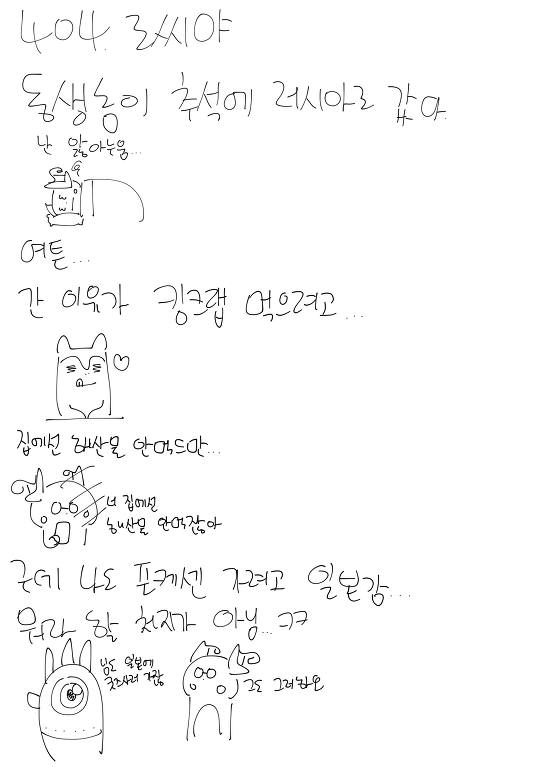 404. 로씨야
동생놈이 추석에 러시아로 갔다
난 앓아누움...
여튼...
간 이유가 킹크랩 먹으려고...
집에선 해산물 안먹드만...
너 집에선
해산물 안먹잖아
근데 나도 포케센 가려고 일본감...
뭐라 할 처지가 아님... ㅋㅋ
님도 일본에
굿즈사러 가잖
그도 그러하오